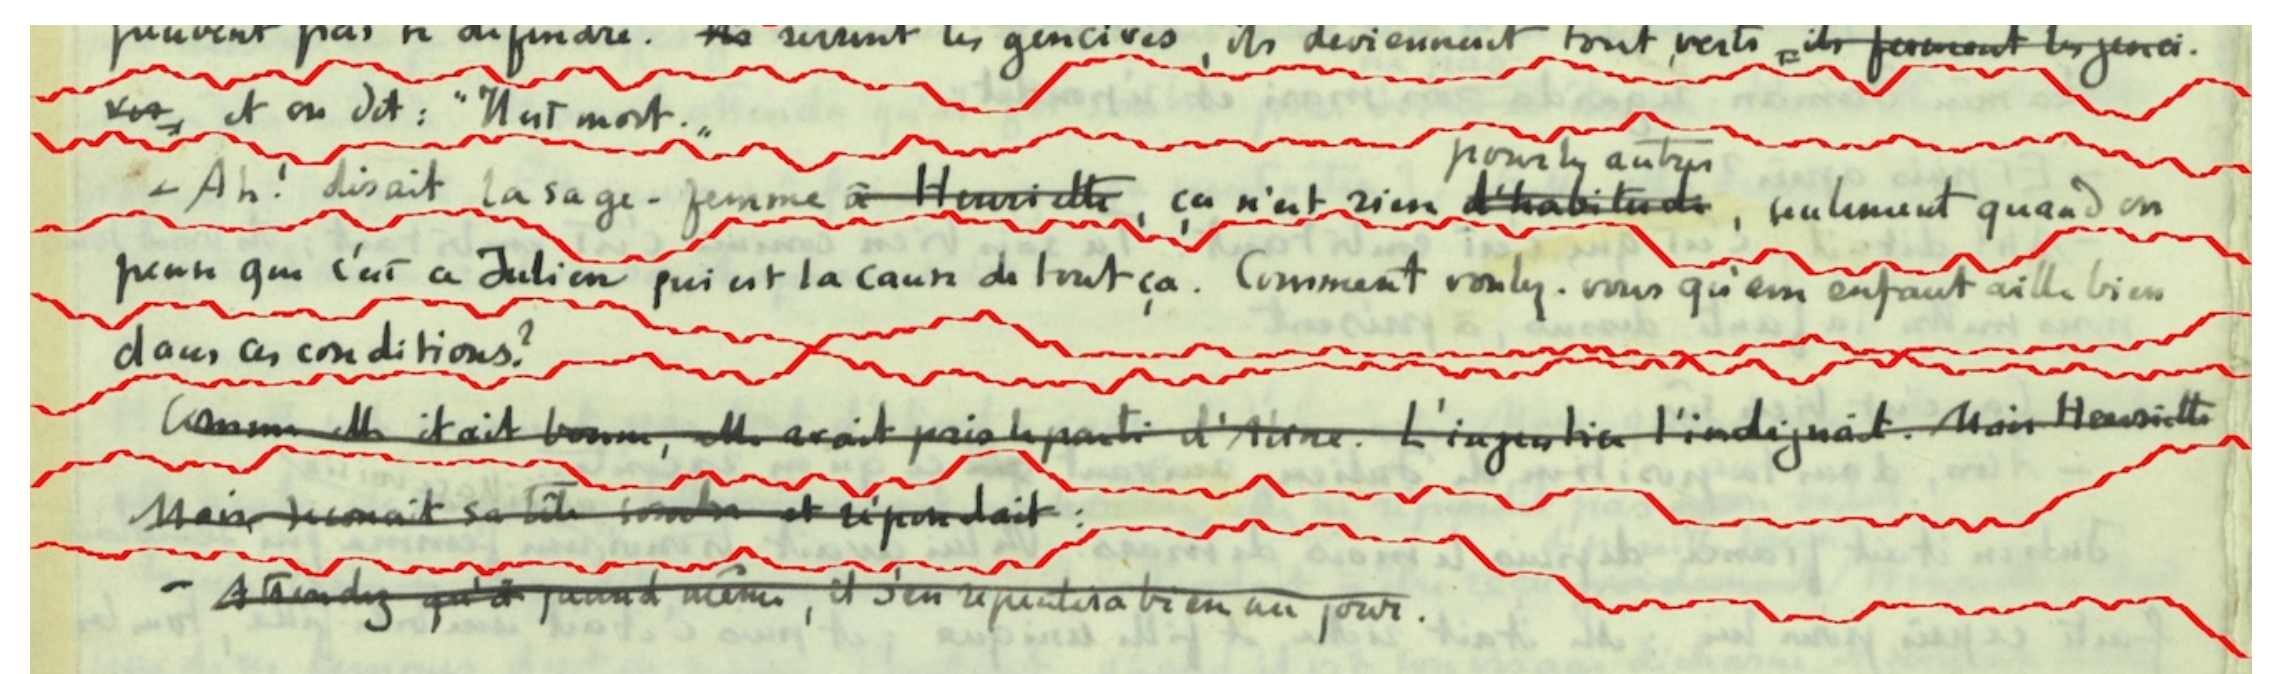 peuvent pas se défendre. Ils serrent les gencives, ils deviennent tout verts, ils ferment les genci-
ves, et on dit : "Il est mort."
pour les autres
- Ah! disait la sage-femme à Henriette, ça n'est rien d'habitude, seulement quand on
pense que c'est ce Julien qui est la cause de tout ça. Comment voulez-vous qu'un enfant aille bien
dans ces conditions?
Comme elle était bonne, elle avait pris le parti d' L'injustice l'indignait. Mais Henriette
Mais, secouait sa tête sombre et répondait :
- Attendez quand même, il s'en repentira bien un jour.